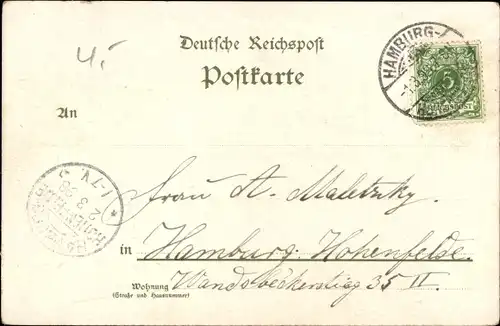 4.-
Deutsche Reichspost
Postkarte
HAMBURG-
5
REICHSPOST
An
1-7V
2 3
98
Frau A. Maletzky
in Hamburg-Hohenfelde.
Wohnung Wandsbeckerstieg 35 II
(Straße und Hausnummer)